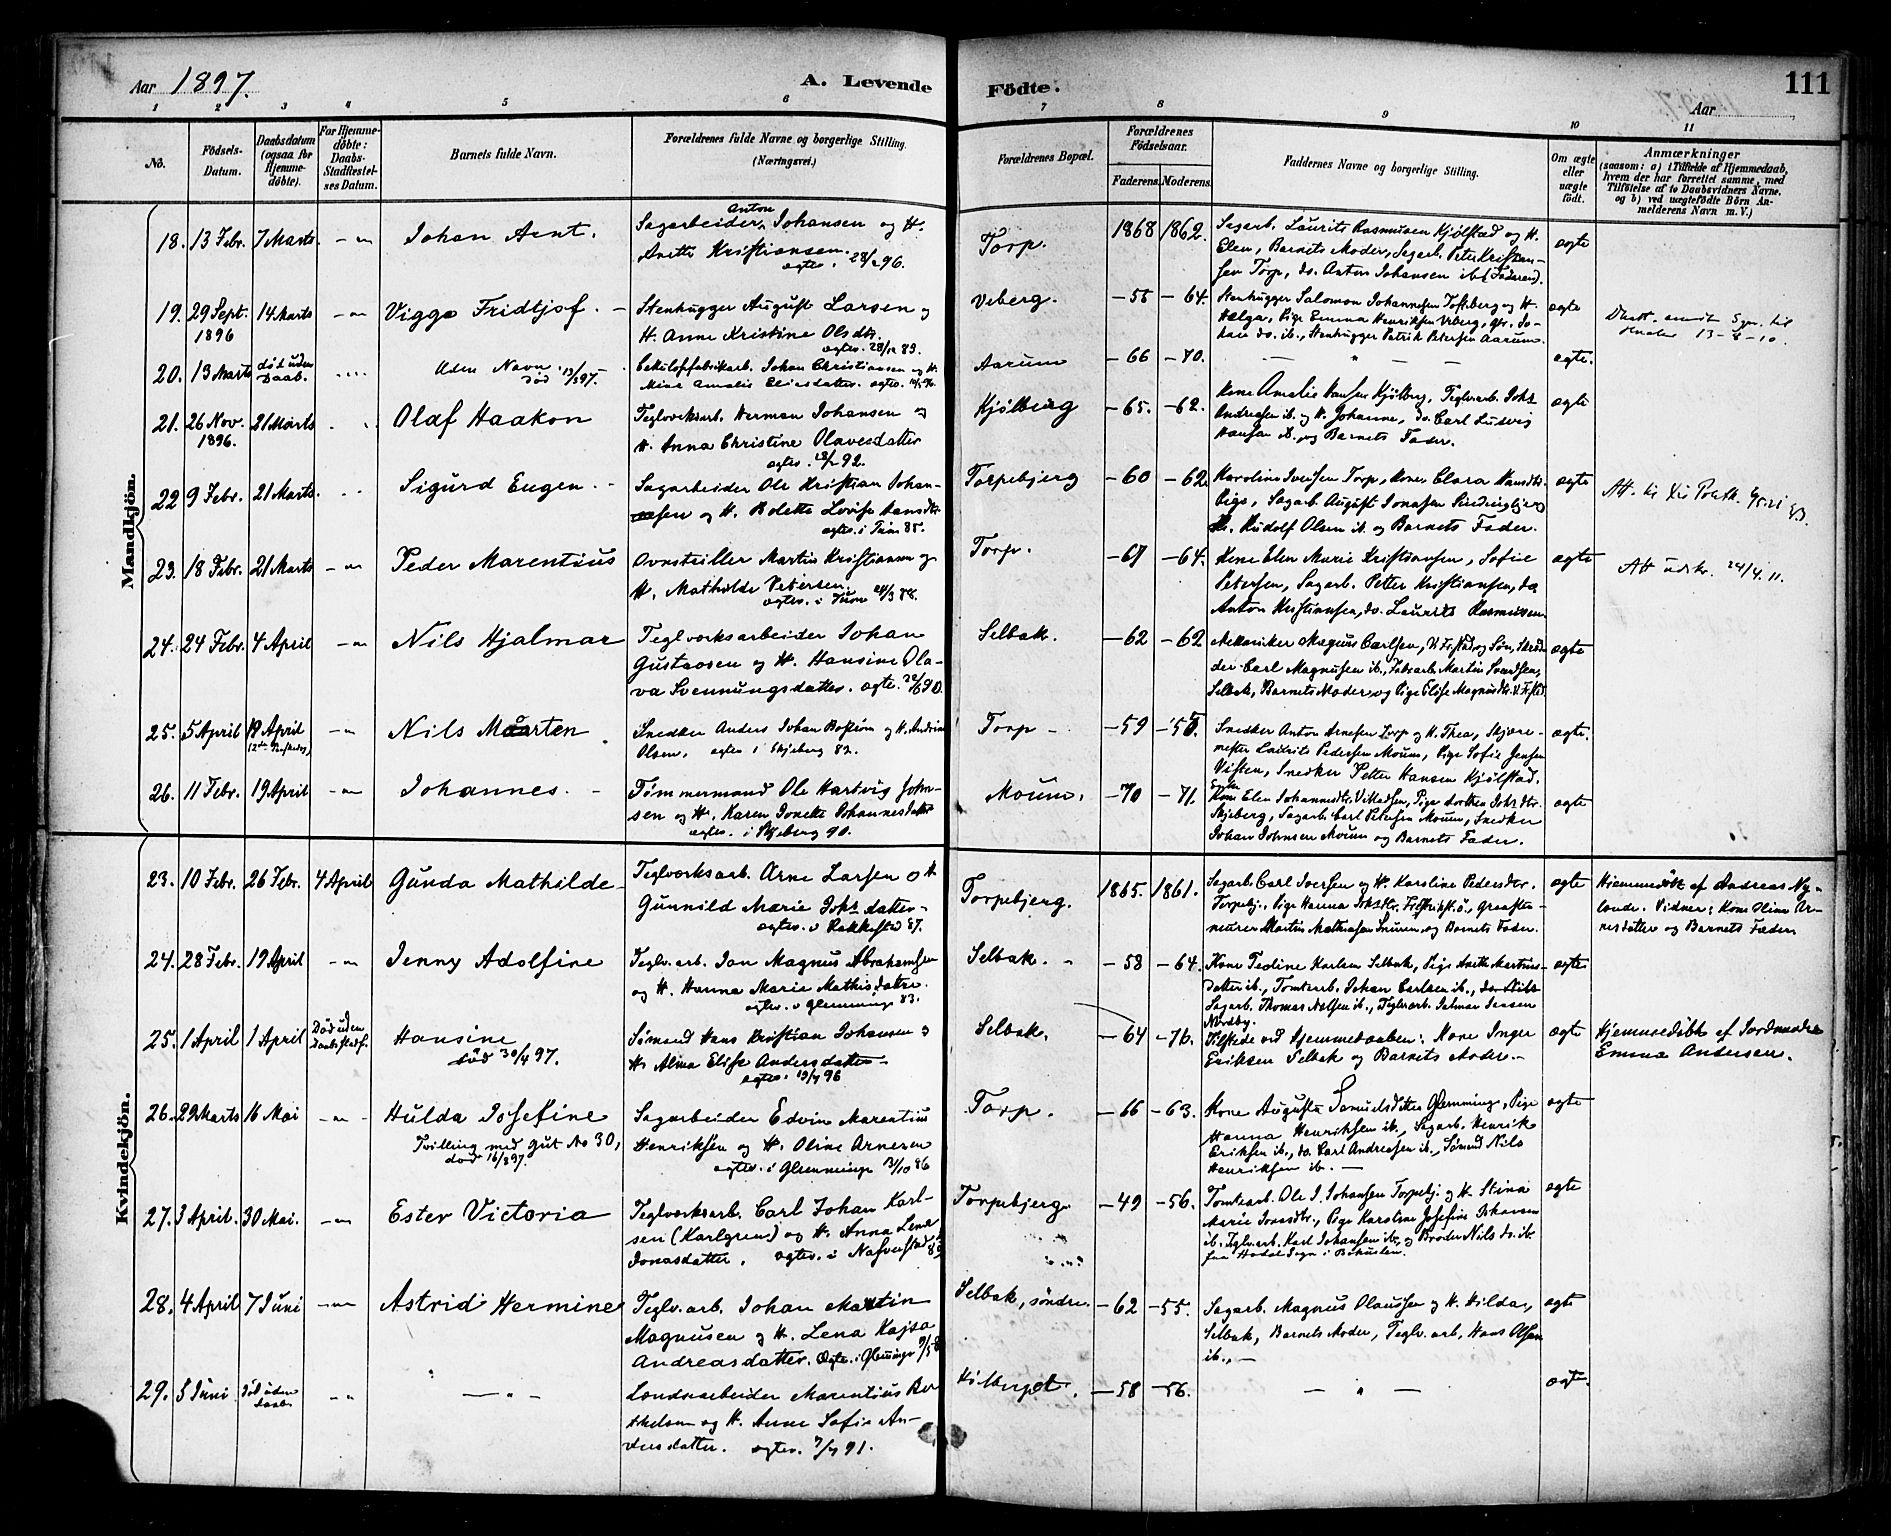 Aar 1897.
A. Levende
Födte.
111
Aar
1 2 3 4 5 6 7 8 9 10 11
No.
Födsels-Datum.
Daabsdatum (ogsaa for Hjemme-døbte).
For Hjemme-døbte: Daabs-Stadfestel-ses Datum.
Barnets fulde Navn.
Forældrenes fulde Navne og borgerlige Stilling. (Næringsvei.)
Forældrenes Bopæl.
Forældrenes Födselsaar.
Faderens. Moderens.
Faddernes Navne og borgerlige Stilling.
Om ægte eller uægte födt.
Anmærkninger
(saasom: a) i Tilfælde af Hjemmedaab, hvem der har forrettet samme, med Tilföielse af to Daabsvidners Navne, og b) ved uægtefödte Börn An-melderens Navn m. V.)
Mandkjön.
18. 13 Febr. 7 Marts. Johan Arnt.
Sagarbeider Anton Johansen og H.
Anette Kristiansen. ægtev. 28/12 96.
Torp. 1868 1862.
Sagarb. Laurits Rasmusen Kjølstad og H.
Elen, Barnets Moder, Sagarb. Peter Kristian-
sen Torp, do. Anton Johansen ib. (Faderen).
ægte
19. 29 Sept. 1896 14 Marts Viggo Fridtjof.
Stenhugger August Larsen og
H. Anne Kristine Olsdtr.
Veberg. -55 -64.
Stenhugger Salomon Johannesen Tofteberg og H.
Helga, Pige Emma Henriksen Veberg,
ib., Stenhugger Petrik Petersen Aarum.
ægte
20. 13 Marts død uden Daab. Uden Navn død 13/3 97.
Johan Christiansen og H.
Mina Amalie Eliesdatter.
Aarum -66 -70.
ægte.
21. 26 Nov. 1896. 21 Marts Olaf Haakon
Teglverksarb. Herman Johansen og
H. Anna Christine Olavesdatter
Kjølberg -65. -62.
Kone Amalie Hansen Kjølberg, Teglverarb. Johs.
Andresen ib. og H. Johanne, do. Carl Ludvig
Hansen ib., og Barnets Fader.
ægte
22 9 Febr. 21 Marts. Sigurd Eugen
Sagarbeider Ole Kristian Johan-
nesen og H. Bolette Lovise Hansdtr.
ægtev. i Tune 85.
Torpebjerg -60 -62
Karoline Iversen Torp, Kone Clara Hansdtr.
Pige, Sagarb. August Jonasen
Rudolf Olsen ib. og Barnets Fader.
ægte
23. 18 Febr. 21 Marts Peder Marentius
Martin Kristiansen og
H. Mathilde Petersen.
ægtev. i Tune
Torp. -64.
Kone Elen Marie Kristiansen, Sofie
Petersen, Sagarb. Petter Kristiansen, do
Anton Kristiansen, do. Laurits Rasmusen
ægte
Att udstr. 24/4 11.
24. 24 Febr. 4 April Nils Hjalmar
Teglverksarbeider Johan
Gustavsen og H. Hansine Ola-
va Svennungsdatter.
Selbak. -62 -62
Mekaniker Magnus Carlsen,
Carl Magnusen ib., Martin Svendsen,
Selbak, Barnets Moder, og Pige Elise
ægte
25. 5 April April Nils Maarten
Snedker Anders Johan Boström og H.
Olsen, ægtev i Skjeberg 82.
Torp -59 -50.
Snedker Anton Arnesen Torp og H. Thea,
Laurits Pedersen Moum, Pige Sofie Jensen
Snedker Petter Hansen Kjølstad.
ægte.
26. 11 Febr. 19 April Johannes.
Tømmermand Ole Hartvig John-
sen og H. Karen Jonette Johannesdatter
ægtev. i Skjeberg 90.
Moum. -70 -71.
Kone Elen Johannesdtr.
Skjeberg, Sagarb. Carl Petersen Moum, Snedker
Johan Johnsen Moum og Barnets Fader.
ægte
Kvindekjön.
23. 10 Febr. 26 Febr. 4 April Gunda Mathilde
Teglverksarb. Arne Larsen og H
Gunnild Marie Johs datter
ægtev. i Rakkestad 87.
Torpebjerg. 1865. 1861.
Sagarb. Carl Iversen og H. Karoline Pedersdtr.
Torpebj. Pige Hanna
Martin Mathiasen og Barnets Fader.
ægte
Hjemmedøbt af Andreas Ny-
lende. Vidner: Kone Oline Ar-
nesdatter og Barnets Fader
24. 28 Febr. 19 April Jenny Adolfine
Teglv.arb. Jan Magnus Abrahamsen
og H. Hanna Marie Mathisdatter.
ægtev. i Glemminge 83.
Selbak. -58 -64.
Kone Tedine Karlsen Selbak, Pige Anette Martins-
datter ib., Tomtearb. Johan Carlsen ib.,
Sagarb. Thomas Nelsen ib., Teglverarb. Jensen
ægte
25. 1 April 1 April Død uden Daabsstadf. Hansine
død 30/4 97.
Sømand Hans Kristian Johansen og
H. Alma Elise Andersdatter
Selbak. -64 -76.
Tilstede ved Hjemmedaaben: Kone Inger
Eriksen Selbak og Barnets Moder.
ægte
Hjemmedøbt af Jordmoder
Emma Andersen.
26. 29 Marts 16 Mai Hulda Josefine
Tvilling med Gut No 30, død 16/8 97.
Sagarbeider Edvin Marentius
Henriksen og H. Oline Arnesen
ægtev. i Glemminge 31/10 86
Torp. -66 -63.
Kone Augusta Samuelsdatter Glemminge, Pige
Hanna Henriksen ib., Sagarb. Henrik
Eriksen ib., do. Carl Andreasen ib., Sømand Nils
Henriksen ib.
ægte
27. 3 April. 30 Mai. Ester Victoria
Teglverksarb. Carl Johan Karl-
sen (Karlgren) og H. Anna Lena
Jonasdatter. ægtev. i Nafverstad
Torpebjerg -49 -56.
Tomtearb. Ole J. Johansen Torpebj. og H. Stina
Marie Jonasdtr., Pige Karoline Josefine Johansen
ib. Teglv.arb. Karl Johansen ib. og Broder Nils do. ib.
ægte
28. 4 April 7 Juni Astrid Hermine
Teglv.arb. Johan Martin
Magnusen og H. Lena Kajsa
Andreasdatter. Ægtev. i Glemminge
Selbak, søndre -62 -55.
Sagarb. Magnus Olaussen og H. Hilda,
Selbak, Barnets Moder, Teglv.arb. Hans Olsen
ib.,
ægte
29. 5 Juni Død uden Daab
Landarbeider Marentius Ber-
thelsen og H. Anne Sofie An-
dersdatter. ægtev. 7/4 91.
-58 -56.
ægte.